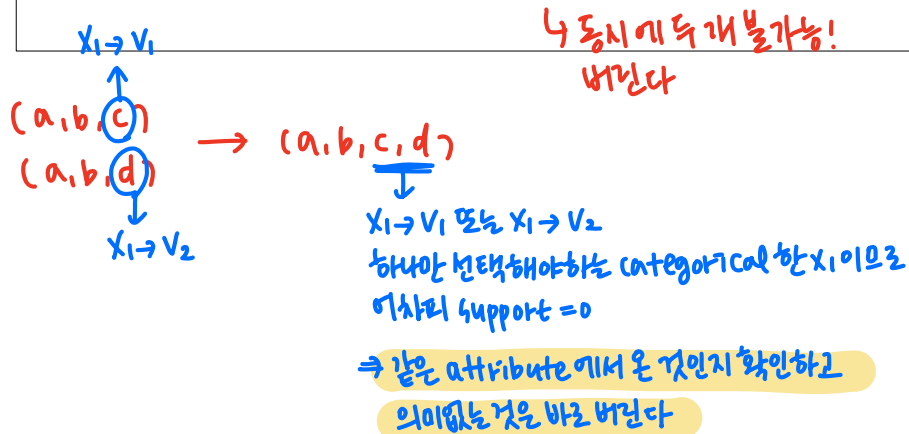 ↳ 동시에 두 개 불가능!
버린다
X₁→V₁
(a,b,c)
(a,b,d)
→ (a,b,c,d)
X₁→V₂
X₁→V₁ 또는 X₁→V₂
하나만 선택해야하는 categorical 한 X₁이므로
어차피 support =0
⇒ 같은 attribute에서 온 것인지 확인하고
의미없는 것은 바로 버린다